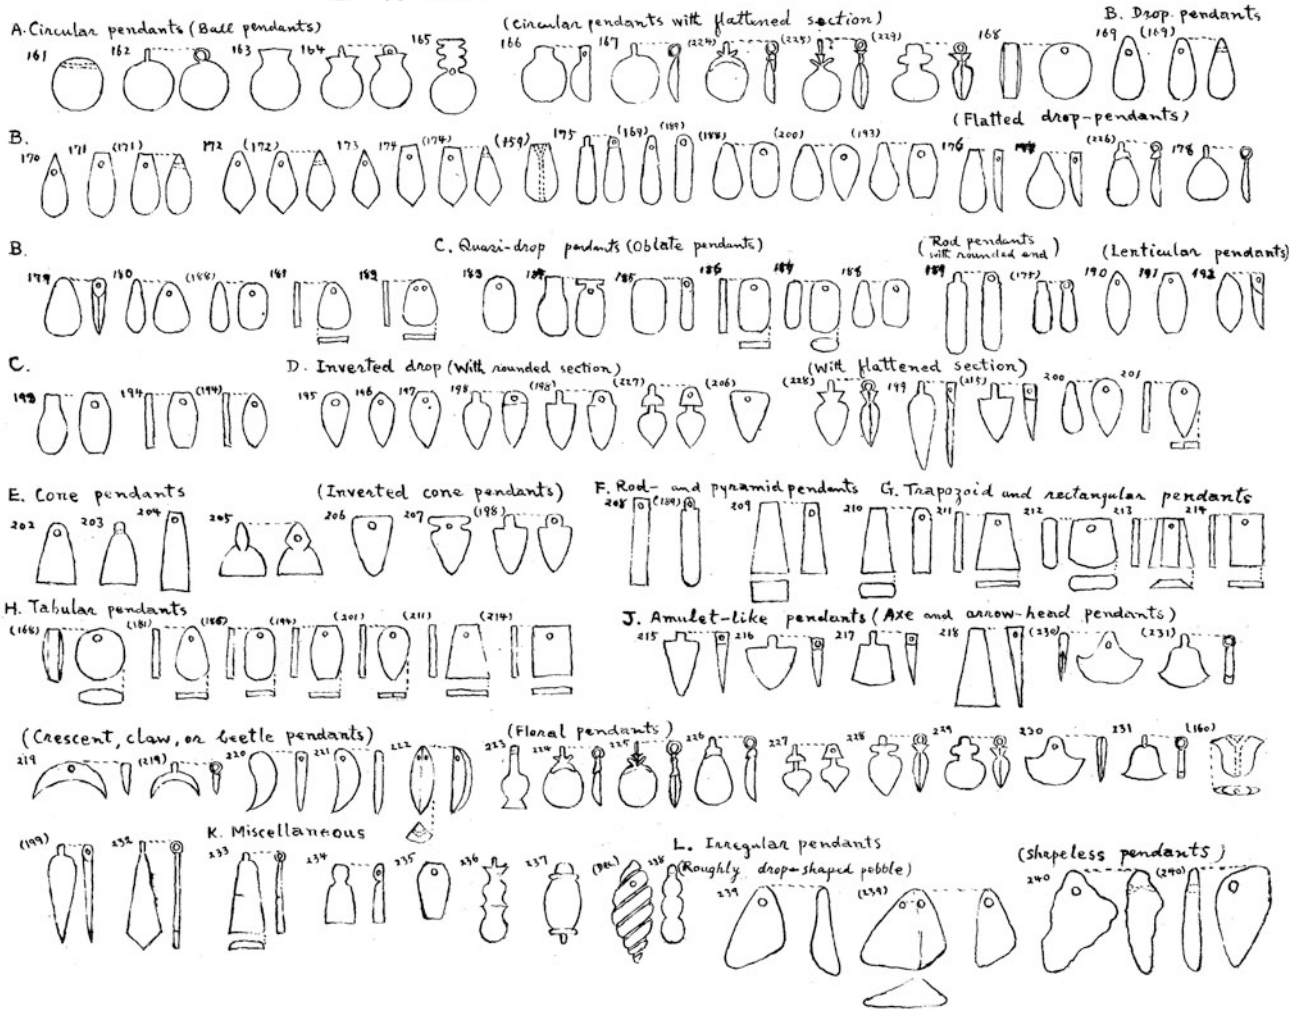 A. Circular pendants (Ball pendants) (Circular pendants with flattened section) B. Drop. pendants
161 162 163 164 165 166 167 (224) (225) (229) 168 169 (169)
B. (Flatted drop-pendants)
170 171 (171) 172 (172) 173 174 (174) (159) 175 (169) (189) (188) (200) (193) 176 (226) 178
B. C. Quasi-drop pendants (Oblate pendants) (Rod pendants with rounded end) (Lenticular pendants)
179 180 (188) 181 182 183 184 185 186 187 188 189 (175) 190 191 192
C. D. Inverted drop (With rounded section) (With flattened section)
193 194 (194) 195 196 197 198 (198) (227) (206) (228) 199 (215) 200 201
E. Cone pendants (Inverted cone pendants) F. Rod- and pyramid pendents G. Trapozoid and rectangular pendants
202 203 204 205 206 207 (198) 208 (189) 209 210 211 212 213 214
H. Tabular pendants J. Amulet-like pendants (Axe and arrow-head pendants)
(168) (181) (186) (194) (201) (211) (214) 215 216 217 218 (230) (231)
(Crescent, claw, or beetle pendants) (Floral pendants)
219 (219) 220 221 222 223 224 225 226 227 228 229 230 231 (160)
K. Miscellaneous L. Irregular pendants
(199) 232 233 234 235 236 237 (Dec.) 238 (Roughly drop-shaped pebble) (Shapeless pendants)
239 (239) 240 (240)